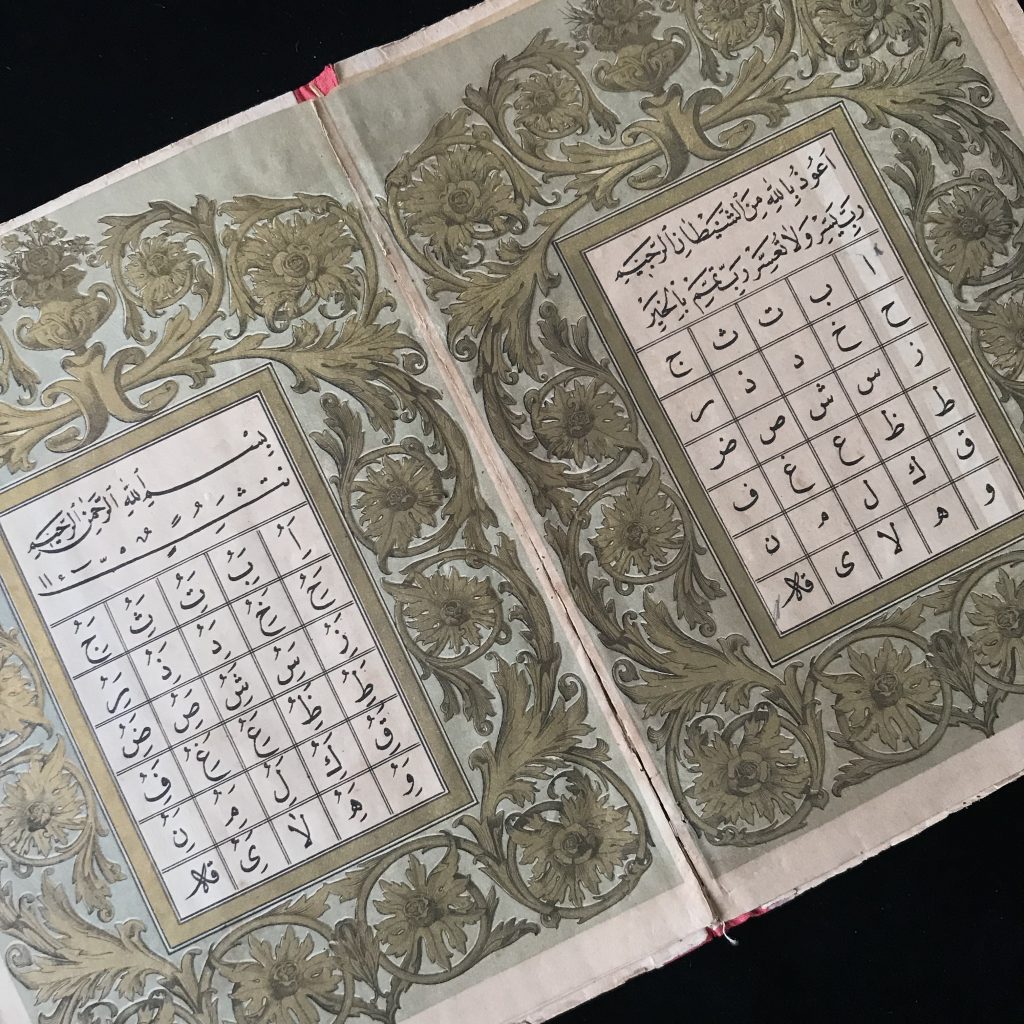 اَعُوذُ بِاللّٰهِ مِنَ الشَّيْطَانِ الرَّجِيمِ
رَبِّ يَسِّرْ وَلَا تُعَسِّرْ رَبِّ تَمِّمْ بِالْخَيْرِ
ا ب ت ث ج
ح خ د ذ ر
ز س ش ص ض
ط ظ ع غ ف
ق ك ل م ن
و ه لا ى
بِسْمِ اللّٰهِ الرَّحْمٰنِ الرَّحِيمِ
اَُِ بَُِ تَُِ ثَُِ جَُِ
حَُِ خَُِ دَُِ ذَُِ رَُِ
زَُِ سَُِ شَُِ صَُِ ضَُِ
طَُِ ظَُِ عَُِ غَُِ فَُِ
قَُِ كَُِ لَُِ مَُِ نَُِ
وَُِ هَُِ لَا ىَُِ